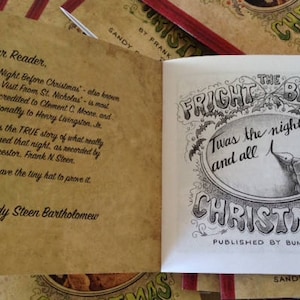 r Reader,
ight Before Christmas" - also known
Visit From St. Nicholas" - is most
credited to Clement C. Moore, and
ionally to Henry Livingston, Jr.
s the TRUE story of what really
ned that night, as recorded by
cestor, Frank N. Steen.
ave the tiny hat to prove it.
dy Steen Bartholomew
THE
FRIGHT B
'Twas the night
and all
CHRISTM
PUBLISHED BY BUN
SANDY
BY FRANK
SANDY